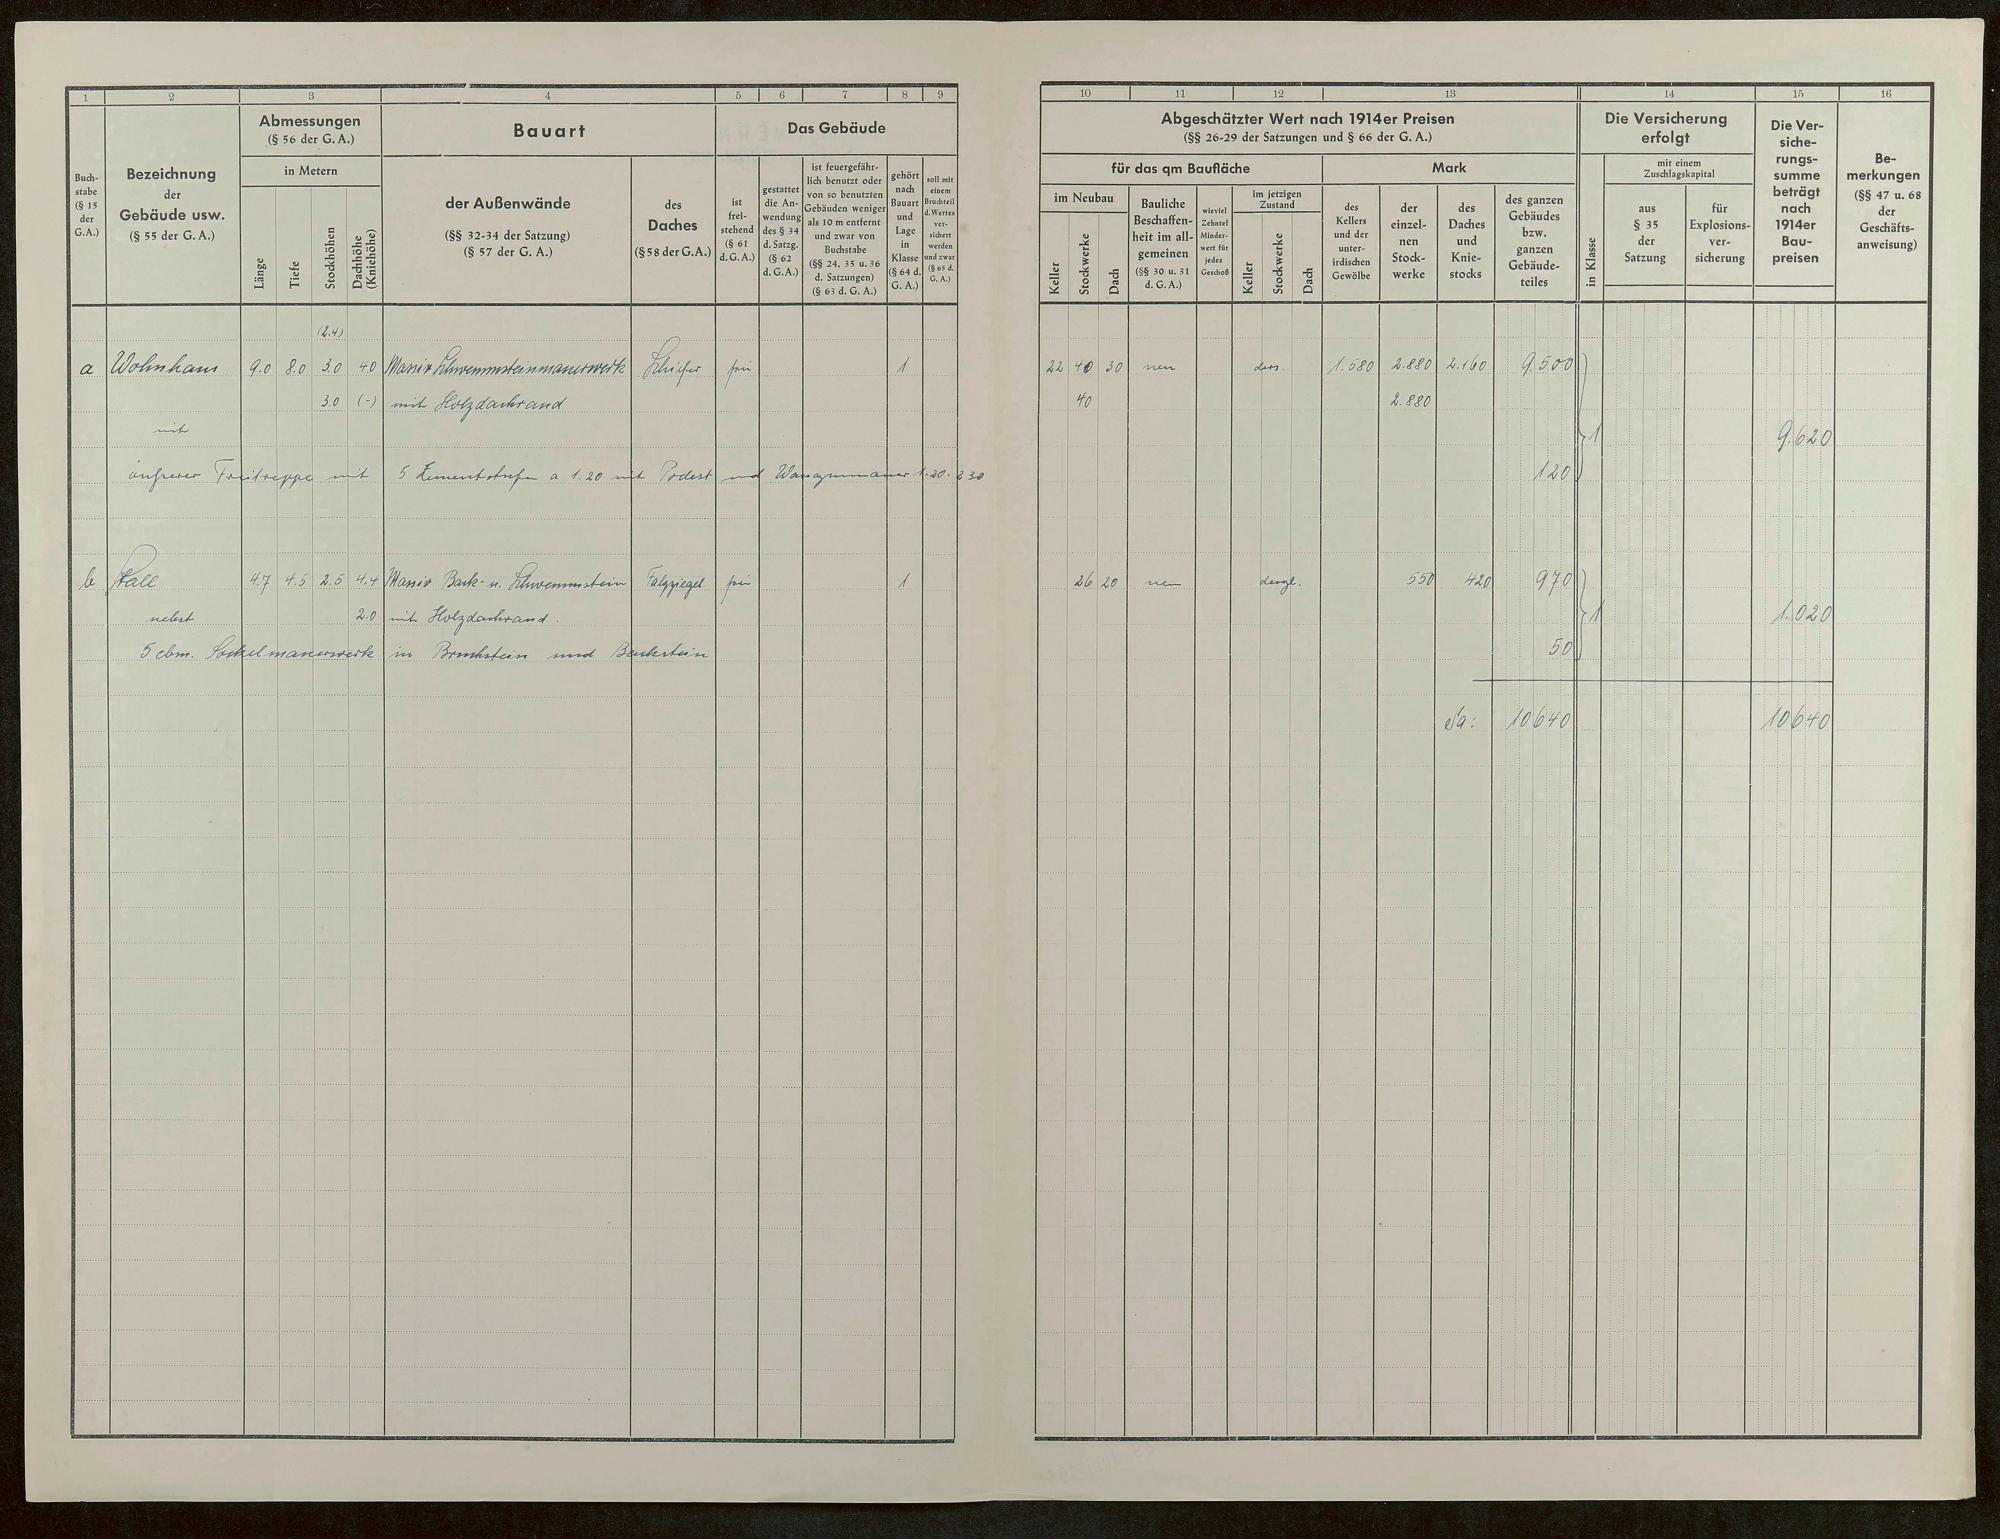 1 2 3 4 5 6 7 8 9
Buch-
stabe
(§ 15
der
G.A.)
Bezeichnung
der
Gebäude usw.
(§ 55 der G. A.)
Abmessungen
(§ 56 der G. A.)
in Metern
Länge
Tiefe
Stockhöhen
Dachhöhe
(Kniehöhe)
Bauart
der Außenwände
(§§ 32-34 der Satzung)
(§ 57 der G. A.)
des
Daches
(§ 58 der G. A.)
Das Gebäude
ist
frei-
stehend
(§ 61
d. G. A.)
gestattet
die An-
wendung
des § 34
d. Satzg.
(§ 62
d. G. A.)
ist feuergefähr-
lich benutzt oder
von so benutzten
Gebäuden weniger
als 10 m entfernt
und zwar von
Buchstabe
(§§ 24, 35 u. 36
d. Satzungen)
(§ 63 d. G. A.)
gehört
nach
Bauart
und
Lage
in
Klasse
(§ 64 d.
G. A.)
soll mit
einem
Bruchteil
d. Wertes
ver-
sichert
werden
und zwar
(§ 65 d.
G. A.)
(2.4)
a Wohnhaus 9.0 8.0 3.0 4.0 Massiv Schwemmsteinmauerwerk Schiefer frei 1
3.0 (-) mit Holzdachrand
mit
äußerer Freitreppe mit 5 Zementstufen a 1.20 mit Podest und Wangenmauer 1.20.
b Stall 4.7 4.5 2.5 4.4 Massiv Back- u. Schwemmstein Falzziegel frei 1
nebst 2.0 mit Holzdachrand.
5 cbm. Sockelmauerwerk in Bruchstein und Backstein
10 11 12 13 14 15 16
Abgeschätzter Wert nach 1914er Preisen
(§§ 26-29 der Satzungen und § 66 der G. A.)
für das qm Baufläche
im Neubau
Keller
Stockwerke
Dach
Bauliche
Beschaffen-
heit im all-
gemeinen
(§§ 30 u. 31
d. G. A.)
wieviel
Zehntel
Minder-
wert für
jedes
Geschoß
im jetzigen
Zustand
Keller
Stockwerke
Dach
Mark
des
Kellers
und der
unter-
irdischen
Gewölbe
der
einzel-
nen
Stock-
werke
des
Daches
und
Knie-
stocks
des ganzen
Gebäudes
bzw.
ganzen
Gebäude-
teiles
Die Versicherung
erfolgt
in Klasse
mit einem
Zuschlagskapital
aus
§ 35
der
Satzung
für
Explosions-
ver-
sicherung
Die Ver-
siche-
rungs-
summe
beträgt
nach
1914er
Bau-
preisen
Be-
merkungen
(§§ 47 u. 68
der
Geschäfts-
anweisung)
22 40 30 neu ders. 1.580 2.880 2.160 9.500
40 2.880
1 9.620
120
26 20 neu dergl. 550 420 970
1 1.020
50
Sa: 10640 10640